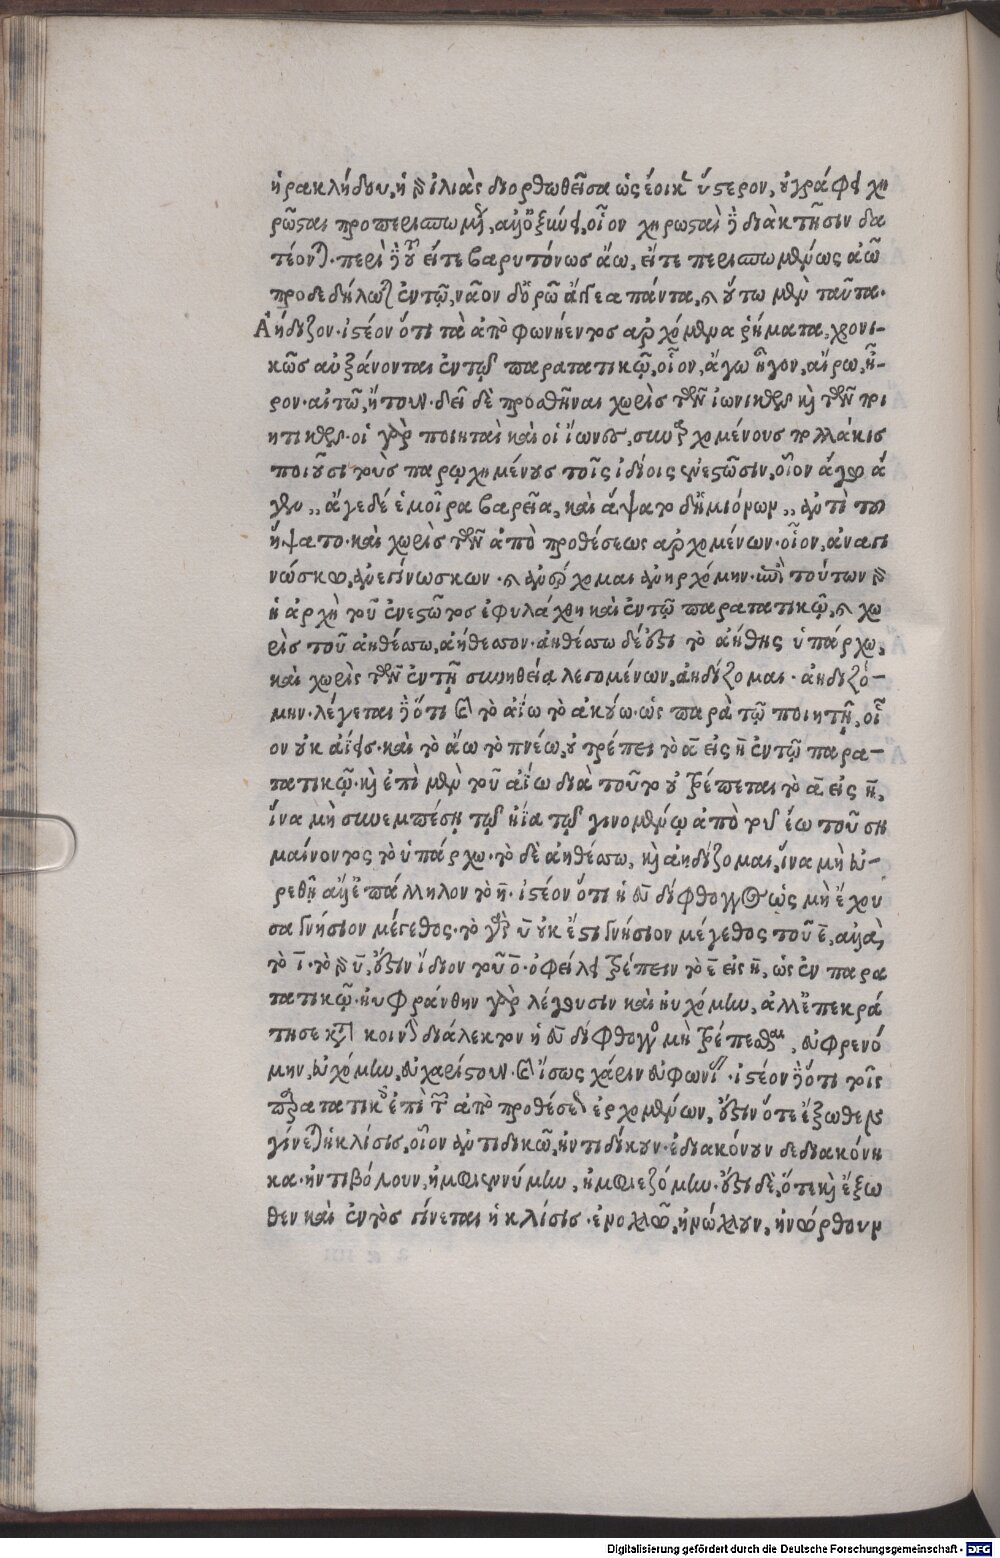 ἡρακλήδου, ἡ δὲ ἰλιὰς διορθωθεῖσα ὡς ἔοικεν ὕστερον, οὐ γράφει χη
ρῶσται προπερισπωμένως, ἀλλ' ὀξυτόνως, οἷον χηρωσταὶ δὲ διὰ κτῆσιν δα
τέοντο. περὶ δὲ τοῦ εἴτε βαρυτόνωσ ἄω, εἴτε περισπωμένως ἀῶ
προδεδήλωται ἐν τῷ, νᾶον δ' ὀρῶ ἄγγεα πάντα, καὶ οὕτω μὲν ταῦτα.
Ἀηδίζον. ἰστέον ὅτι τὰ ἀπὸ φωνήεντος ἀρχόμενα ῥήματα, χρονι-
κῶσ αὐξάνονται ἐν τῷ παρατατικῷ, οἷον, ἄγω ἦγον, αἴρω, ἦ-
ρον. αἰτῶ, ᾔτουν. δεῖ δὲ προσθῆναι χωρὶσ τῶν ἰωνικῶς καὶ τῶν ποι
ητικῶς. οἱ γὰρ ποιηταὶ καὶ οἱ ἴωνες, συνερχομένους πολλάκισ
ποιοῦσι τοὺσ παρῳχημένουσ τοῖς ἰδίοις ἐνεστῶσιν, οἷον ἄγω ἄ
γον,, ἄγε δέ ἑ μοῖρα βαρεῖα, καὶ ἅψατο δ' ἡμιόνων,, ἀντὶ τοῦ
ἥψατο. καὶ χωρὶσ τῶν ἀπὸ προθέσεως ἀρχομένων. οἷον, ἀναγι
νώσκω, ἀνεγίνωσκον. καὶ ἀνέρχομαι ἀνηρχόμην. ἐπὶ τούτων γὰρ
ἡ ἀρχὴ τοῦ ἐνεστῶτοσ ἐφυλάχθη καὶ ἐν τῷ παρατατικῷ, καὶ χω
ρὶσ τοῦ ἀηθέσσω, ἀήθεσσον. ἀηθέσσω δέ ἐστι τὸ ἀήθης ὑπάρχω,
καὶ χωρὶς τῶν ἐν τῇ συνηθείᾳ λεγομένων, ἀηδίζομαι. ἀηδιζό-
μην. λέγεται δὲ ὅτι καὶ τὸ ἀίω τὸ ἀκούω. ὡς παρὰ τῷ ποιητῇ, οἷ
ον οὐκ ἀίεισ. καὶ τὸ ἄω τὸ πνέω, οὐ τρέπει τὸ ᾱ εἰς η̄ ἐν τῷ παρα-
τατικῷ. καὶ ἐπὶ μὲν τοῦ ἀίω διὰ τοῦτο οὐ τρέπεται τὸ ᾱ εἰς η̄,
ἵνα μὴ συνεμπέσῃ τῷ ἤια τῷ γινομένῳ ἀπὸ τοῦ ἔω τοῦ ση
μαίνοντος τὸ ὑπάρχω. τὸ δὲ ἀηθέσσω, καὶ ἀηδίζομαι, ἵνα μὴ εὑ-
ρεθῇ ἀλλ' ἐπάλληλον τὸ η̄. ἰστέον ὅτι ἡ ευ δίφθογγος ὡς μὴ ἔχου
σα γνήσιον μέγεθος. τὸ γὰρ ῡ οὐκ ἔστι γνήσιον μέγεθος τοῦ ε̄, ἀλλὰ
τὸ ῑ. τὸ δὲ ῡ, ἐστὶν ἴδιον τοῦ ο̄. ὀφείλει τρέπειν τὸ ε̄ εἰς η̄, ὡς ἐν παρα
τατικῷ. ηὐφράνθην γὰρ λέγουσιν καὶ ηὐχόμην, ἀλλ' ἐπεκρά
τησε κατὰ κοινὴν διάλεκτον ἡ ευ δίφθογγος μὴ τρέπεσθαι, εὐφρενό
μην, εὐχόμην, εὐχαρίστουν. καὶ ἴσως χάριν εὐφωνίας. ἰστέον δὲ ὅτι τοῖς
παρατατικοῖς ἐπὶ τῶν ἀπὸ προθέσεων ἐρχομένων, ἐστὶν ὅτε ἔξωθεν
γίνεται ἡ κλίσισ, οἷον ἀντιδικῶ, ἠντιδίκουν. ἐδιακόνουν δεδιακόνη
κα. ἠντιβόλουν, ἠμφιεννύμην, ἠμφιεζόμην. ἔστι δὲ, ὅτε καὶ ἔξω
θεν καὶ ἐντὸσ γίνεται ἡ κλίσισ. ἐνοχλῶ, ἠνώχλουν, ἠνώρθουν